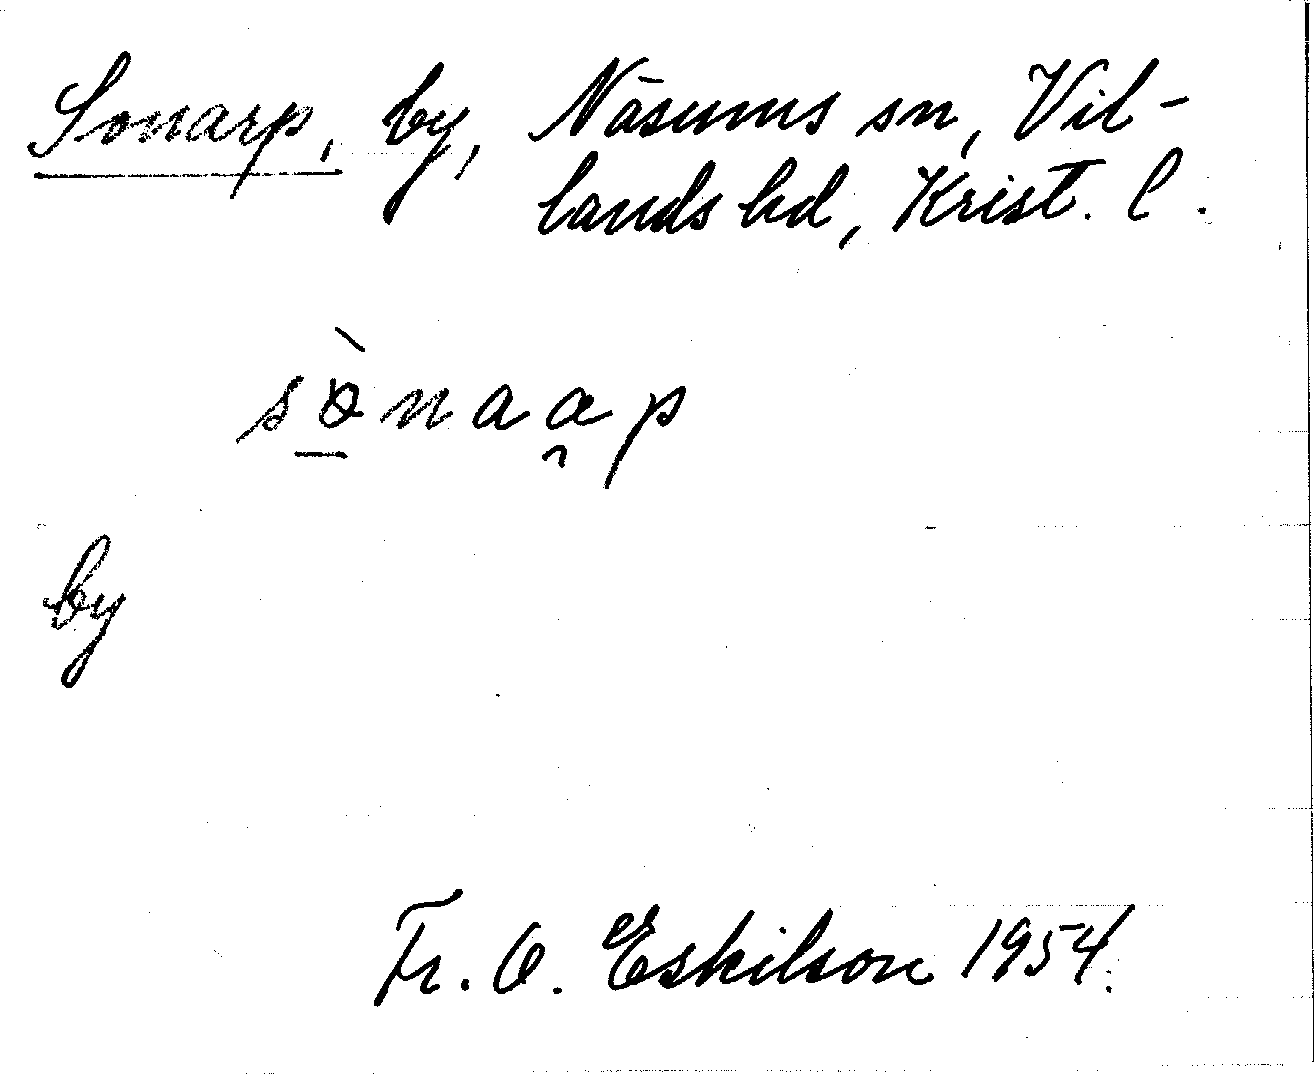 Sonarp, by, Näsums sn, Vil-
lands hd, Krist. l.
sò̱naa̯p
by
Fr. O. Eskilson 1954.